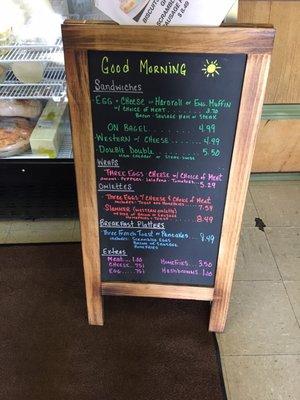 Good Morning
Sandwiches
Egg + Cheese on Hardroll or Eng. Muffin
w/ choice of Meat
Bacon or Sausage Ham or Steak
ON Bagel 4.99
Western w/ Cheese 4.99
Double Double 5.50
Wraps
Three Eggs Cheese w/ choice of Meat
Onions - Peppers - Jalapeno - Tomatoes 5.29
Omlettes
Three Eggs w/ Cheese + choice of Meat
7.59
Slammer (western omlette)
8.49
Breakfast Platters
Three French Toast or Pancakes 8.49
includes: Scrambled Eggs
Bacon or Sausage
Homefries
Extras
Meat 1.00 Homefries 3.50
Cheese .75¢
Egg .75¢ Hashbrowns 1.00